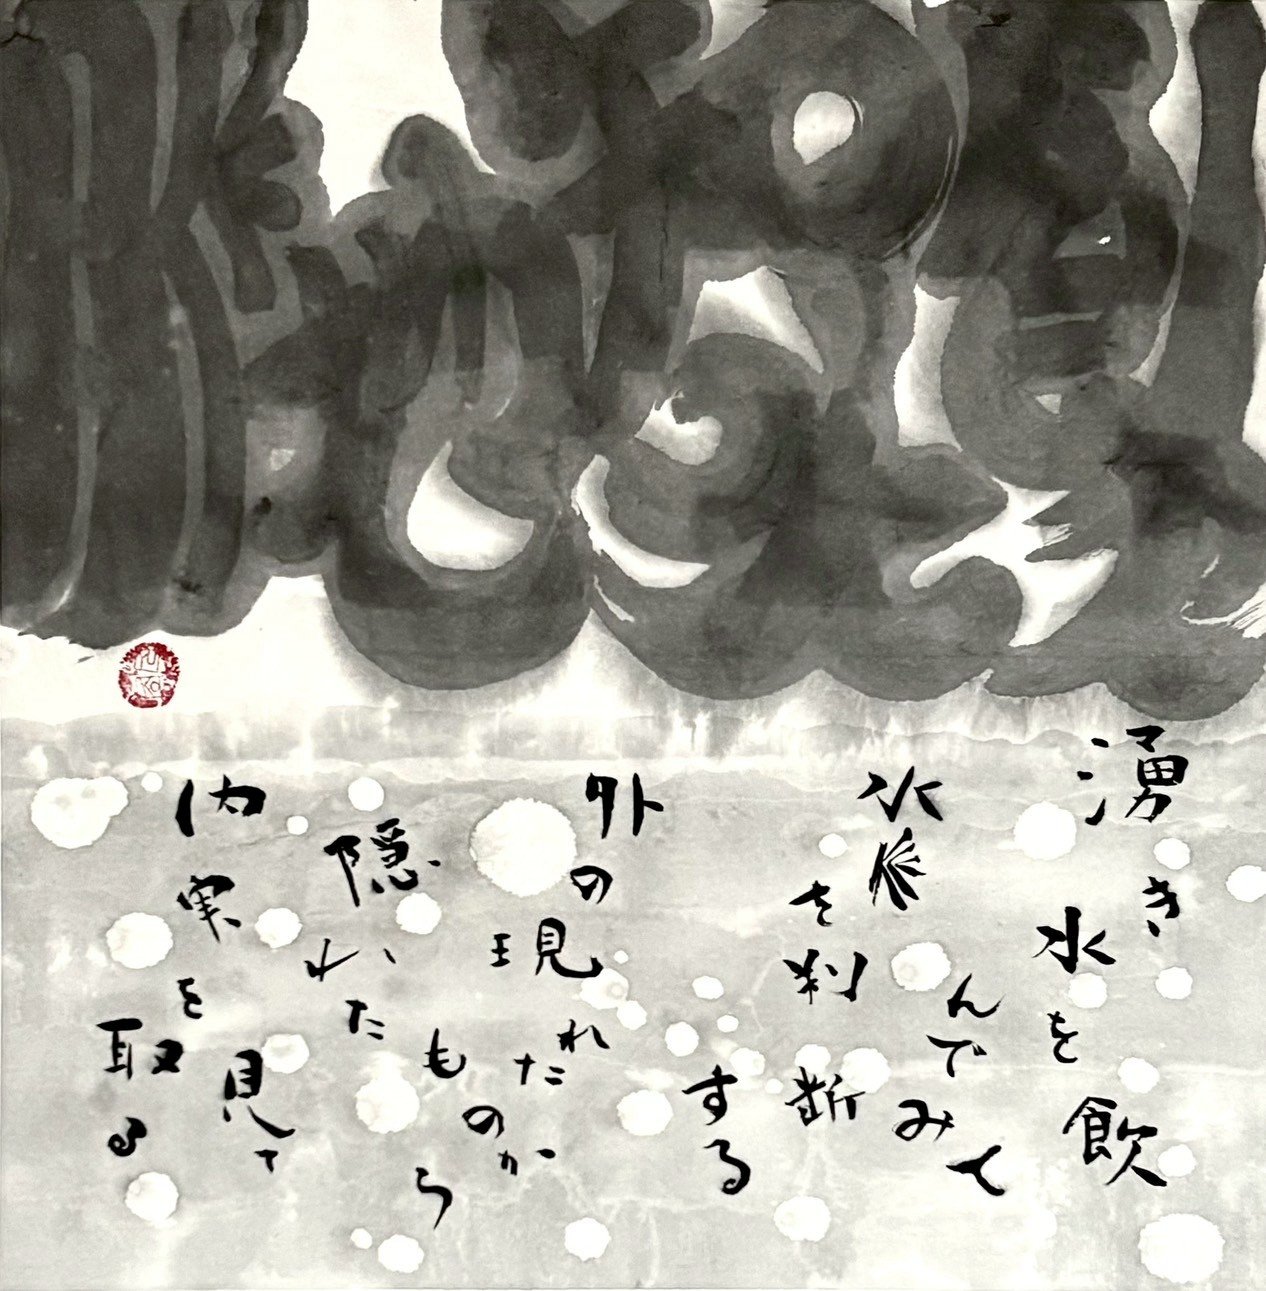 湧き水を飲んでみて
水脈を判断する
外の現れたものから
隠れた
内実を見て取る